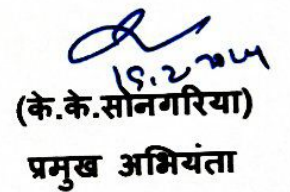 19.2.2014
(के.के.सोनगरिया)
प्रमुख अभियंता